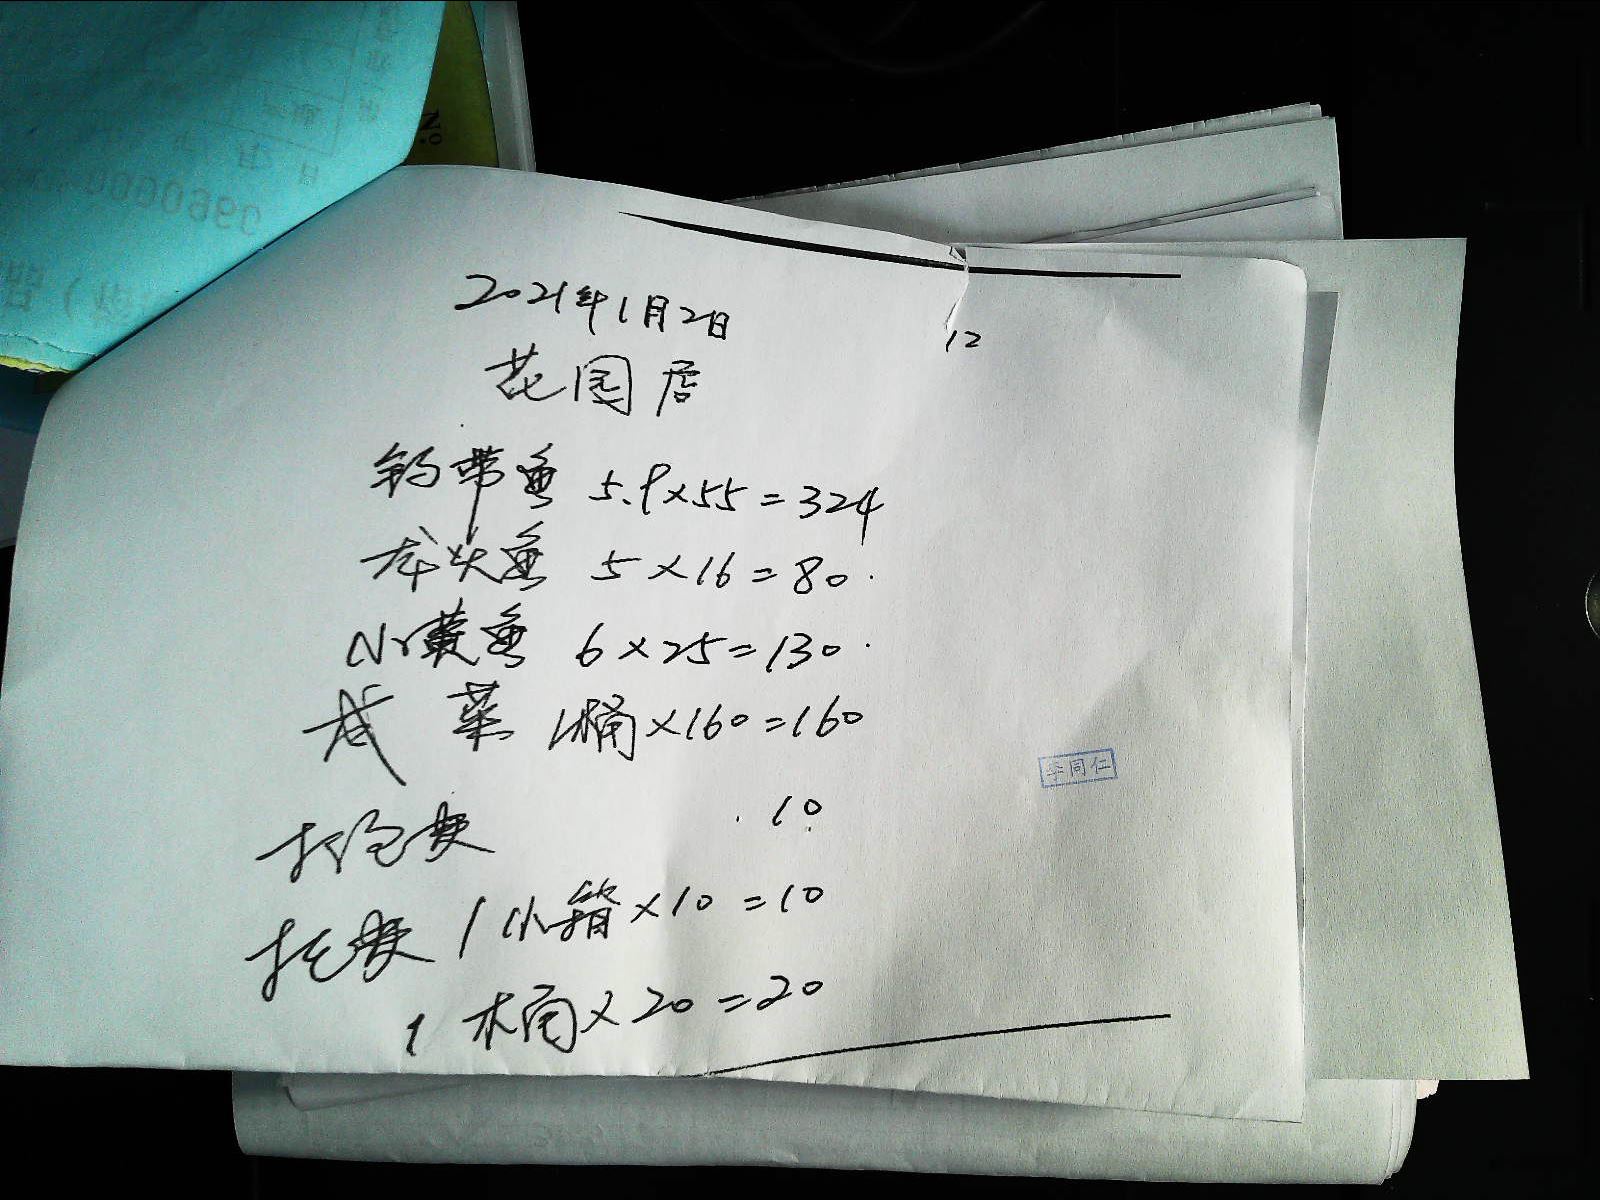 2021年1月2日
12
花园店
钓带鱼 5.9×55=324
龙头鱼 5×16=80
小黄鱼 6×25=130
咸菜 1桶×160=160
打包费 10
托费 1小箱×10=10
1桶×20=20
李同仁
No
0000960